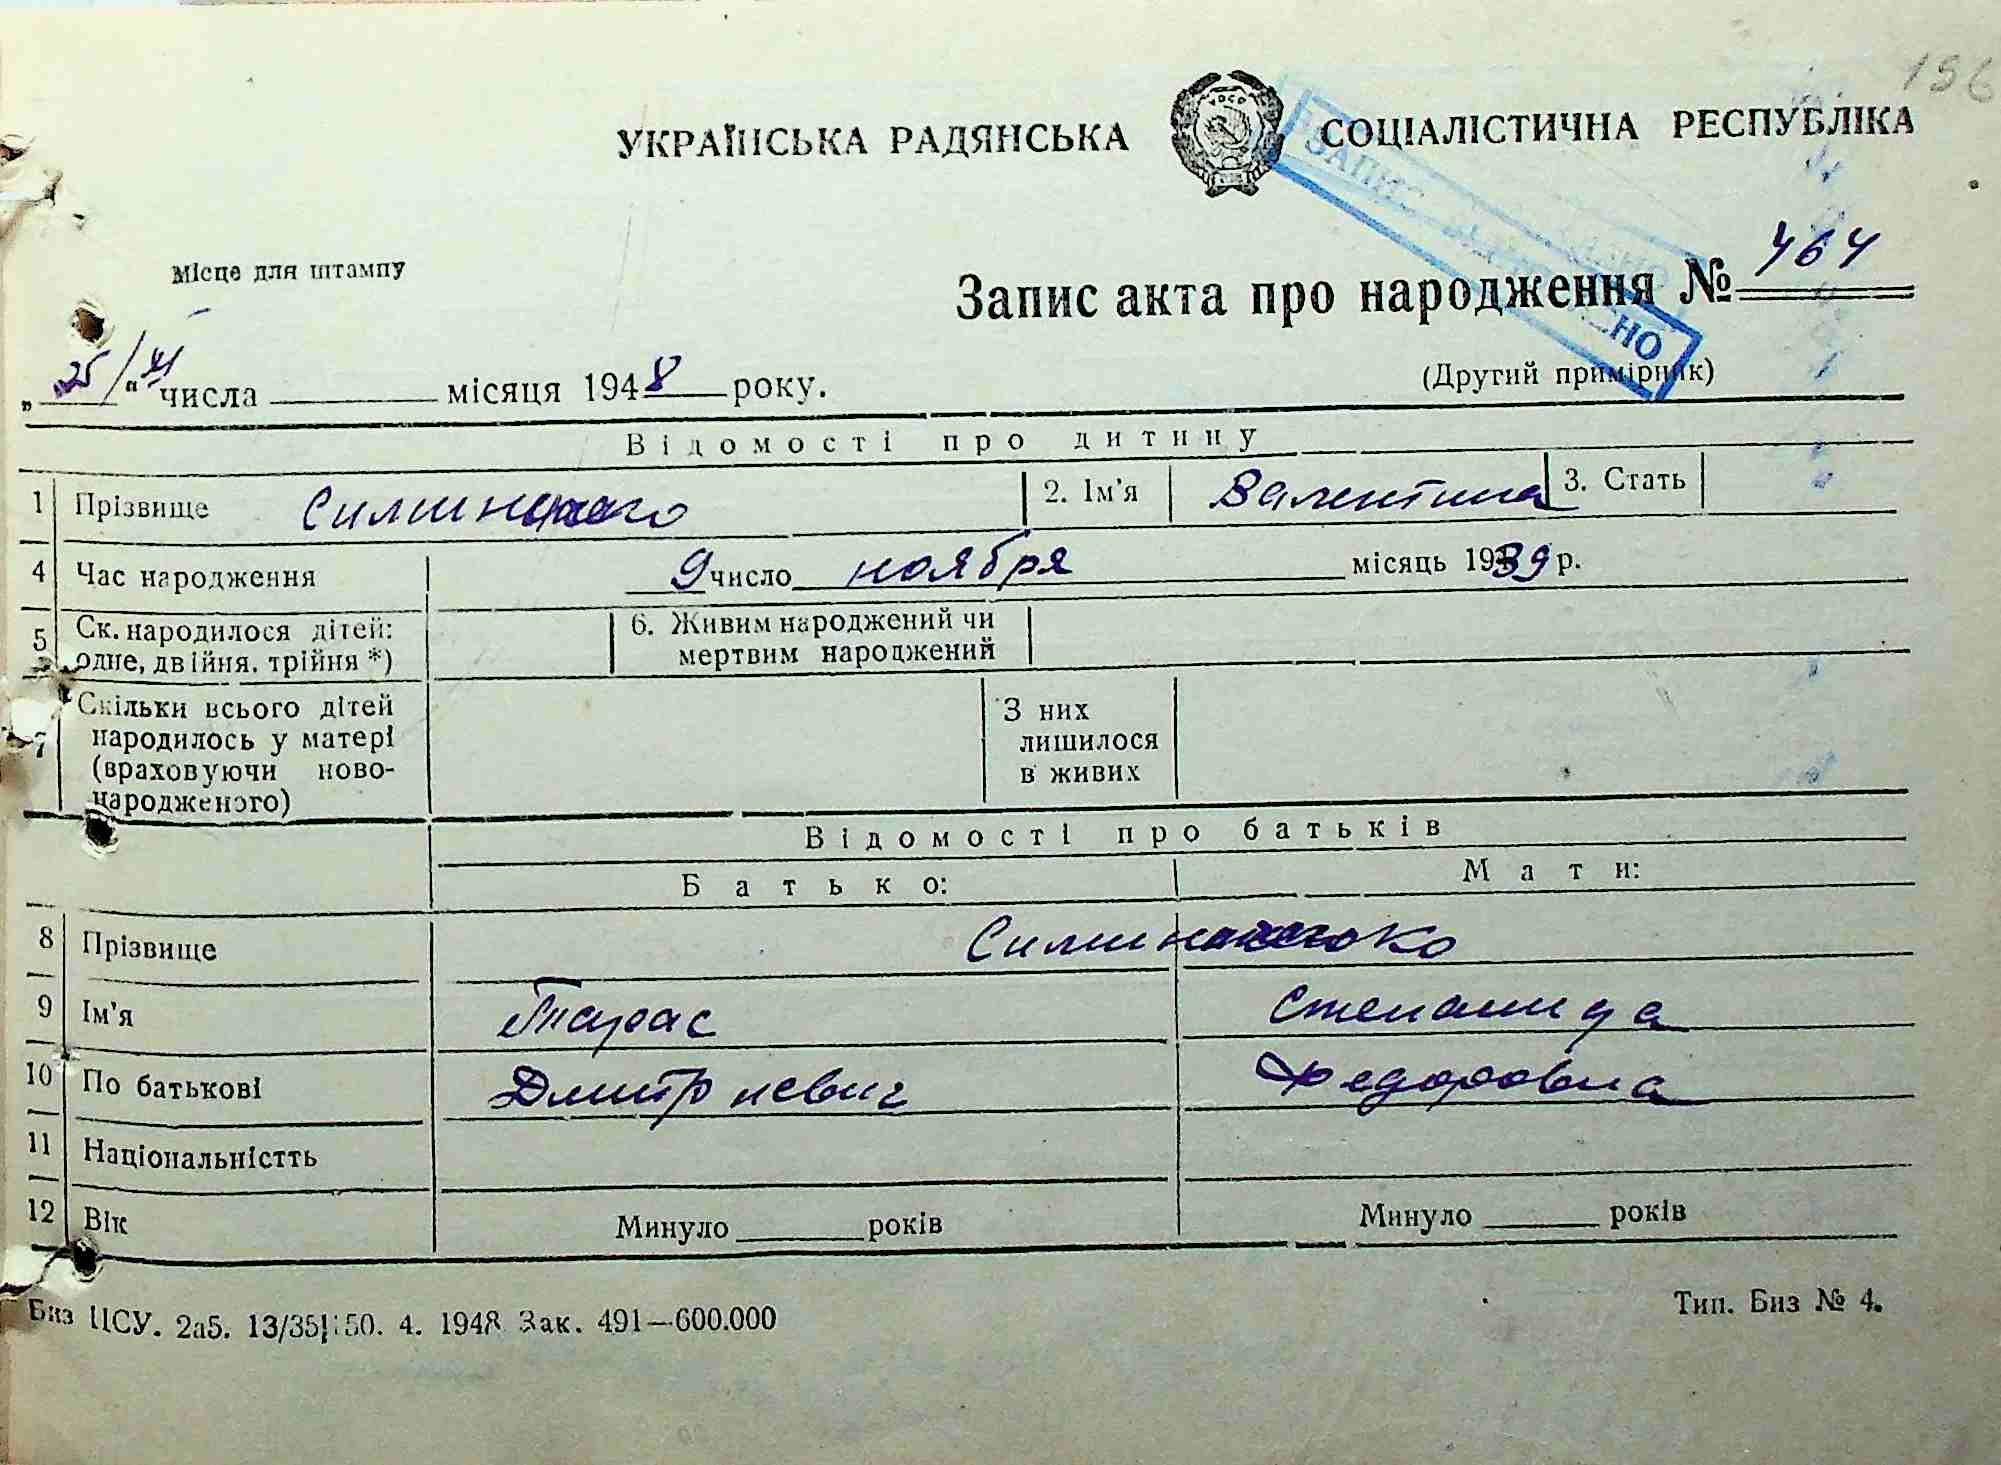 156
УКРАЇНСЬКА РАДЯНСЬКА СОЦІАЛІСТИЧНА РЕСПУБЛІКА
Місце для штампу
Запис акта про народження № 464
(Другий примірник)
„25/VI“ числа місяця 1948 року.
Відомості про дитину
1 Прізвище 2. Ім'я Валентина 3. Стать
4 Час народження 9 число ноября місяць 1939 р.
5 Ск. народилося дітей: одне, двійня, трійня *) 6. Живим народжений чи мертвим народжений
7 Скільки всього дітей народилось у матері (враховуючи новонародженого) З них лишилося в живих
Відомості про батьків
Батько: Мати:
8 Прізвище
9 Ім'я Тарас Степанида
10 По батькові Дмитриевич Федоровна
11 Національністть
12 Вік Минуло років Минуло років
Биз ЦСУ. 2а5. 13/35 50. 4. 1948 Зак. 491—600.000
Тип. Биз № 4.